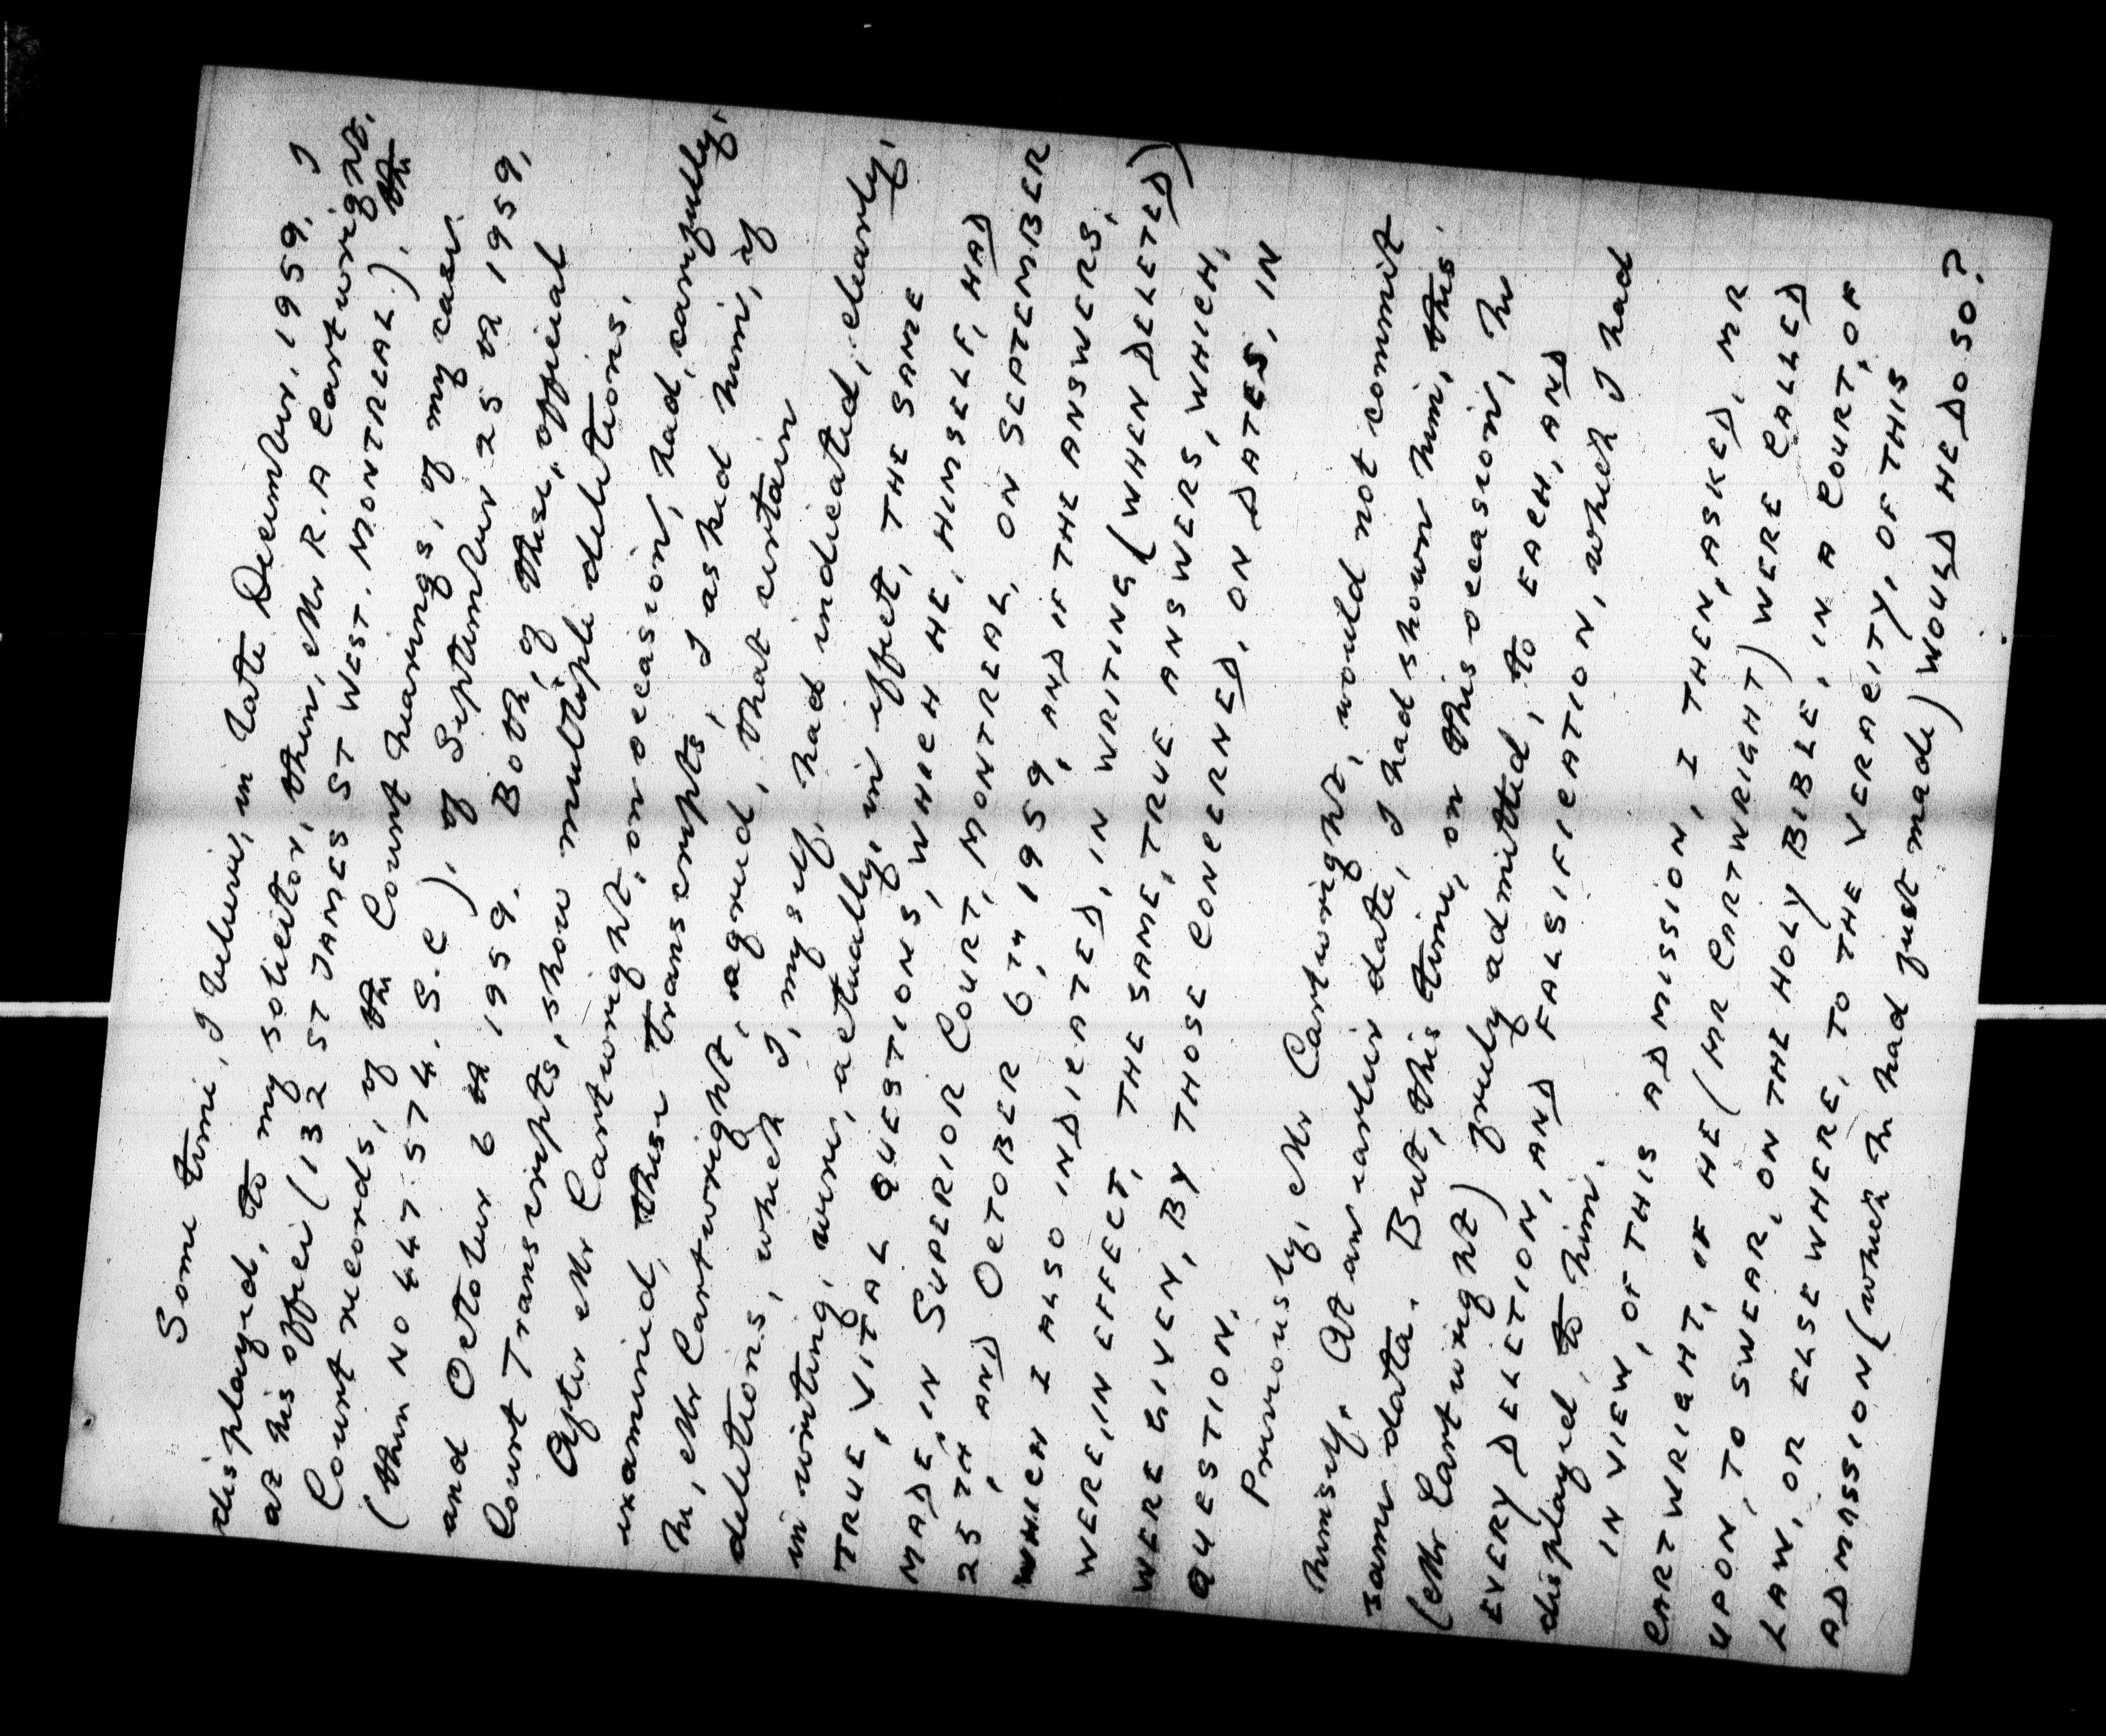 Some time, I believe, in late December, 1959, I
displayed, to my solicitor, then, Mr R. A Cartwright,
at his office (132 ST JAMES ST WEST. MONTREAL). the
Court records, of the Court hearings, of my case.
(then NO 447574. S.C), of September 25 th 1959,
and October 6 th 1959. Both, of these, official
Court Transcripts, show multiple deletions.
After Mr Cartwright, on occasion, had, carefully,
examined, these transcripts, I asked him, if
he, Mr Cartwright, agreed, that certain
deletions, which I, myself, had indicated, clearly,
in writing, were, actually, in effect, THE SAME
TRUE, VITAL QUESTIONS, WHICH HE, HIMSELF, HAD
MADE, IN SUPERIOR COURT, MONTREAL, ON SEPTEMBER
25 TH, AND OCTOBER 6TH, 1959, AND IF THE ANSWERS,
WHICH I ALSO INDICATED, IN WRITING (WHEN DELETED)
WERE, IN EFFECT, THE SAME, TRUE ANSWERS, WHICH,
WERE GIVEN, BY THOSE CONCERNED, ON DATES, IN
QUESTION.
Previously, Mr Cartwright, would not commit
himself. At an earlier date, I had shown him, this
same data. But, this time, on this occasion, he
(Mr Cartwright) freely admitted, to EACH, AND
EVERY DELETION, AND FALSIFICATION, which I had
displayed, to him.
IN VIEW, OF THIS ADMISSION I THEN, ASKED, MR
CARTWRIGHT, IF HE (MR CARTWRIGHT) WERE CALLED
UPON, TO SWEAR, ON THE HOLY BIBLE, IN A COURT, OF
LAW, OR ELSEWHERE, TO THE VERACITY, OF THIS
ADMISSION (which he had just made) WOULD HE DO SO?